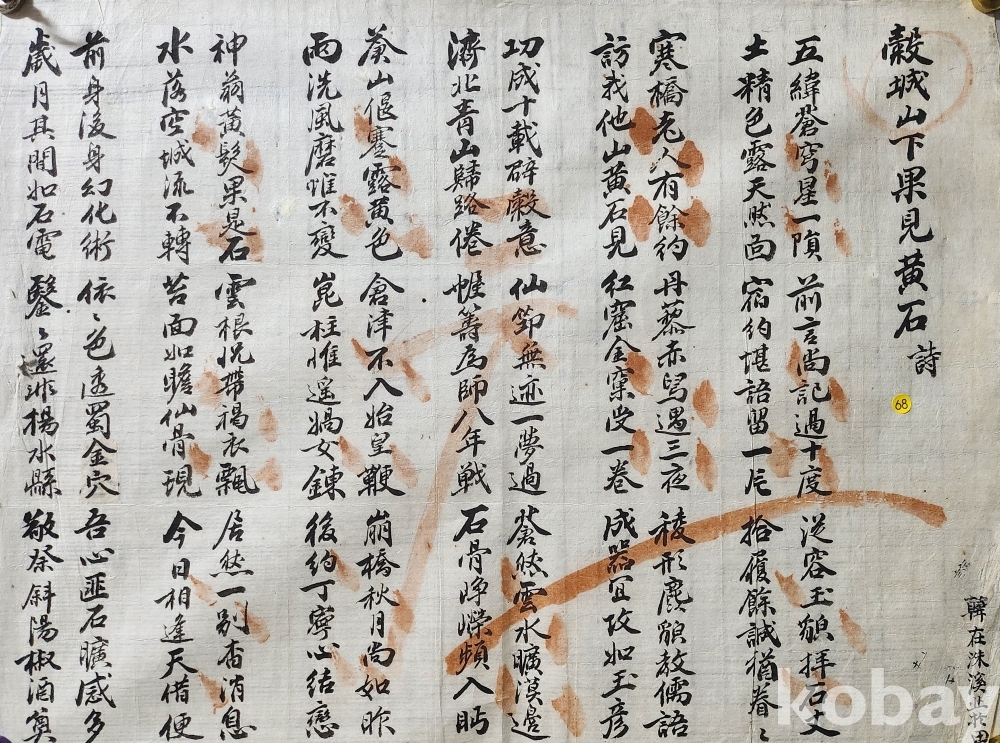 穀城山下果見黃石詩
五緯蒼穹星一隕 前言尚記過十度 從容玉貌拜石丈
土精色露天然面 宿約堪語留一片 拾履餘誠猶眷〻
寒橋老人有餘約 丹藜赤舃遇三夜 稜形麂貌教儒語
訪我他山黃石見 紅窟金窠受一卷 成器冝攻如玉彥
功成十載辟糓意 仙節無迹一夢過 蒼然雲水曠漠邊
濟北靑山歸路倦 帷籌爲師八年戰 石骨崢嶸頻入眄
蒼山偃蹇露黃色 倉津不入始皇鞭 崩橋秋月尚如昨
雨洗風磨惟不變 崑柱惟遙媧女鍊 後約丁寧心結戀
神翁黃髮果是石 雲根怳帶褐衣飄 居然一別杳消息
水落空城流不轉 苔面如瞻仙骨現 今日相逢天借便
前身後身幻化術 依〻色透蜀金穴 吾心匪石曠感多
歲月其間如石電 鑿〻還非楊水縣 敬祭斜陽椒酒奠
韓在洙溪
68
kobay